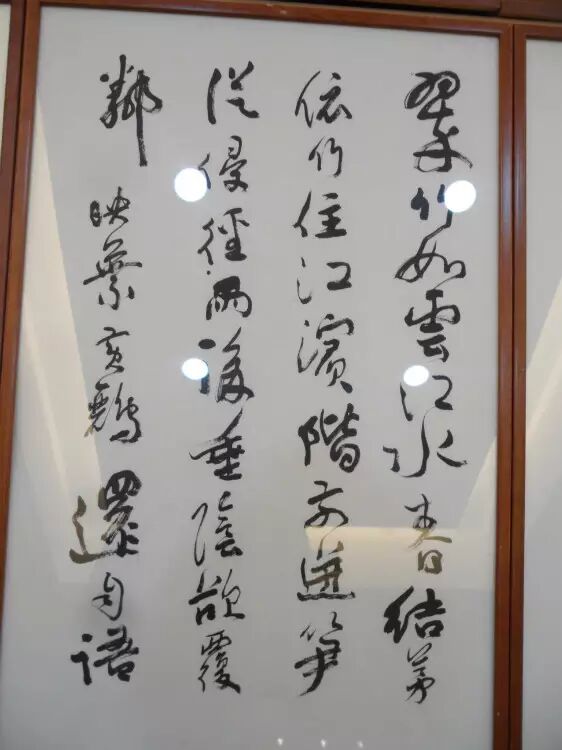 翠竹如雲江水春結茅
依竹住江濱階前迸笋
從侵徑雨後垂陰欲覆
鄰映葉黃鸝還自語